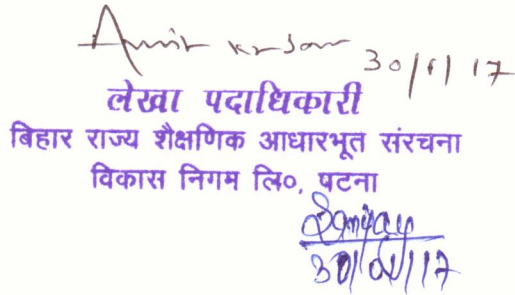 Amit kr 30/1/17
लेखा पदाधिकारी
बिहार राज्य शैक्षणिक आधारभूत संरचना
विकास निगम लि०, पटना
Sanjay
30/01/17